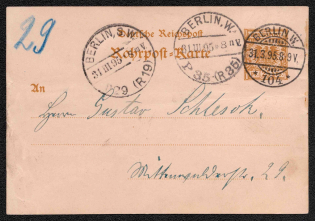 29
Deutsche Reichspost
Rohrpost-Karte
BERLIN, W.
31.III.95
*29 (R19)
BERLIN, W.
31.III.95 8 N.V.
P. 35 (R35)
BERLIN, W.
31.3.95.8-9V.
* 10 a
An
Herrn Gustav Schlesch.
Mittenwalderstr. 29.